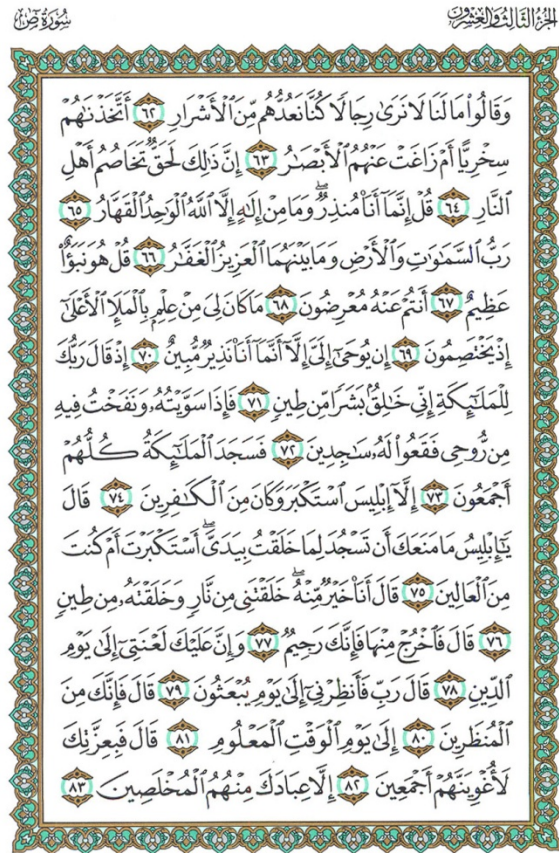 الجزء الثالث والعشرون
سُورَةُ صٓ
وَقَالُوا۟ مَا لَنَا لَا نَرَىٰ رِجَالًا كُنَّا نَعُدُّهُم مِّنَ ٱلْأَشْرَارِ ٦٢ أَتَّخَذْنَٰهُمْ
سِخْرِيًّا أَمْ زَاغَتْ عَنْهُمُ ٱلْأَبْصَٰرُ ٦٣ إِنَّ ذَٰلِكَ لَحَقٌّ تَخَاصُمُ أَهْلِ
ٱلنَّارِ ٦٤ قُلْ إِنَّمَآ أَنَا۠ مُنذِرٌ ۖ وَمَا مِنْ إِلَٰهٍ إِلَّا ٱللَّهُ ٱلْوَٰحِدُ ٱلْقَهَّارُ ٦٥
رَبُّ ٱلسَّمَٰوَٰتِ وَٱلْأَرْضِ وَمَا بَيْنَهُمَا ٱلْعَزِيزُ ٱلْغَفَّٰرُ ٦٦ قُلْ هُوَ نَبَؤٌا۟
عَظِيمٌ ٦٧ أَنتُمْ عَنْهُ مُعْرِضُونَ ٦٨ مَا كَانَ لِىَ مِنْ عِلْمٍۭ بِٱلْمَلَإِ ٱلْأَعْلَىٰٓ
إِذْ يَخْتَصِمُونَ ٦٩ إِن يُوحَىٰٓ إِلَىَّ إِلَّآ أَنَّمَآ أَنَا۠ نَذِيرٌ مُّبِينٌ ٧٠ إِذْ قَالَ رَبُّكَ
لِلْمَلَٰٓئِكَةِ إِنِّى خَٰلِقٌۢ بَشَرًا مِّن طِينٍ ٧١ فَإِذَا سَوَّيْتُهُۥ وَنَفَخْتُ فِيهِ
مِن رُّوحِى فَقَعُوا۟ لَهُۥ سَٰجِدِينَ ٧٢ فَسَجَدَ ٱلْمَلَٰٓئِكَةُ كُلُّهُمْ
أَجْمَعُونَ ٧٣ إِلَّآ إِبْلِيسَ ٱسْتَكْبَرَ وَكَانَ مِنَ ٱلْكَٰفِرِينَ ٧٤ قَالَ
يَٰٓإِبْلِيسُ مَا مَنَعَكَ أَن تَسْجُدَ لِمَا خَلَقْتُ بِيَدَىَّ ۖ أَسْتَكْبَرْتَ أَمْ كُنتَ
مِنَ ٱلْعَالِينَ ٧٥ قَالَ أَنَا۠ خَيْرٌ مِّنْهُ ۖ خَلَقْتَنِى مِن نَّارٍ وَخَلَقْتَهُۥ مِن طِينٍ
٧٦ قَالَ فَٱخْرُجْ مِنْهَا فَإِنَّكَ رَجِيمٌ ٧٧ وَإِنَّ عَلَيْكَ لَعْنَتِىٓ إِلَىٰ يَوْمِ
ٱلدِّينِ ٧٨ قَالَ رَبِّ فَأَنظِرْنِىٓ إِلَىٰ يَوْمِ يُبْعَثُونَ ٧٩ قَالَ فَإِنَّكَ مِنَ
ٱلْمُنظَرِينَ ٨٠ إِلَىٰ يَوْمِ ٱلْوَقْتِ ٱلْمَعْلُومِ ٨١ قَالَ فَبِعِزَّتِكَ
لَأُغْوِيَنَّهُمْ أَجْمَعِينَ ٨٢ إِلَّا عِبَادَكَ مِنْهُمُ ٱلْمُخْلَصِينَ ٨٣